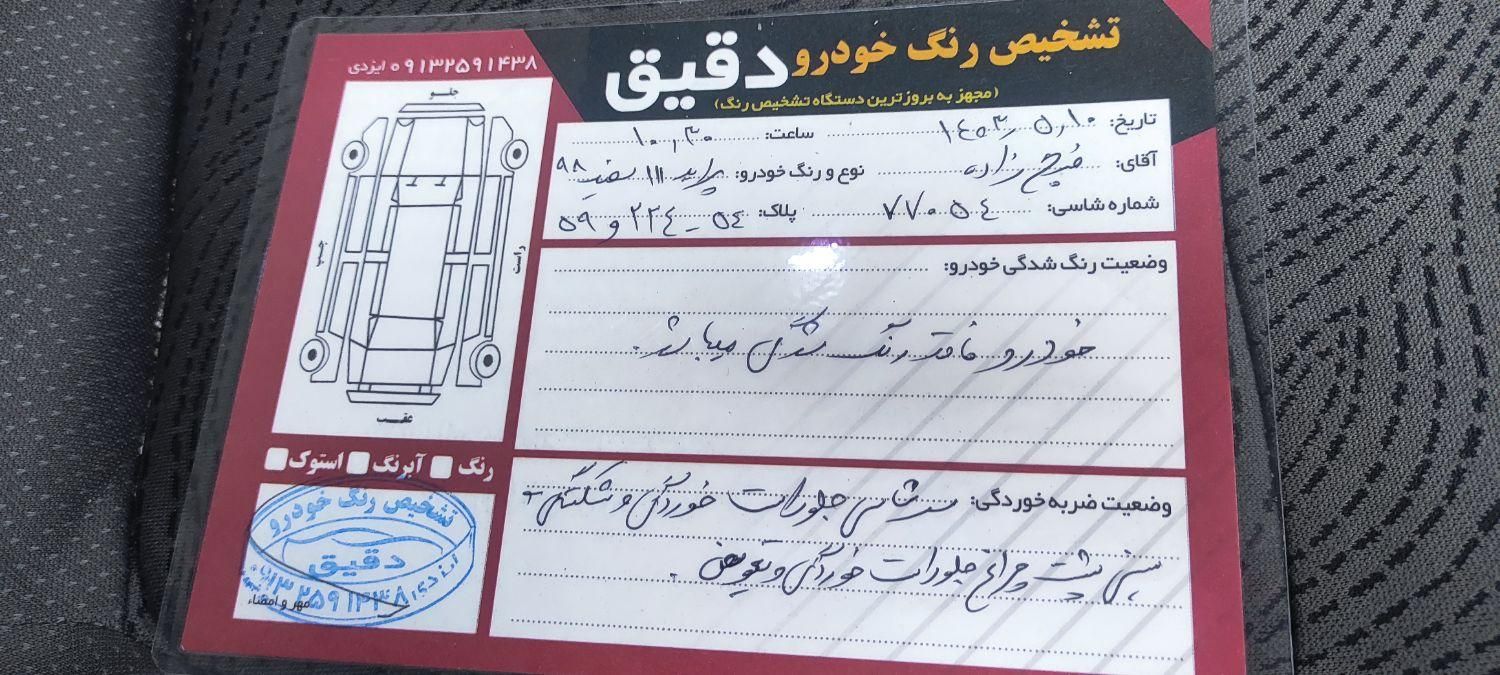 تشخیص رنگ خودرو دقیق
(مجهز به بروزترین دستگاه تشخیص رنگ)
۰۹۱۳۲۵۹۱۴۳۸ ایزدی
تاریخ: ۱۴۰۳٫۵٫۱۰ ساعت: ۱۰٫۳۰
آقای: فرج زاده نوع و رنگ خودرو: پراید ۱۱۱ سفید ۹۸
شماره شاسی: ۷۷۰۵۴ پلاک: ۵۴ - ۲۲۴ و ۵۹
وضعیت رنگ شدگی خودرو:
خودرو فاقد رنگ شدگی میباشد.
وضعیت ضربه خوردگی: سرشاسی جلو راست خوردگی و شکستگی -
سینی پشت چراغ جلو راست خوردگی و تعویض.
جلو
چپ
راست
عقب
رنگ آبرنگ استوک
تشخیص رنگ خودرو
دقیق
۰۹۱۳۲۵۹۱۴۳۸
مهر و امضاء